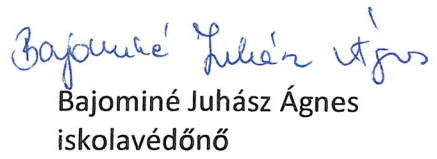 Bajominé Juhász Ágnes
Bajominé Juhász Ágnes
iskolavédőnő